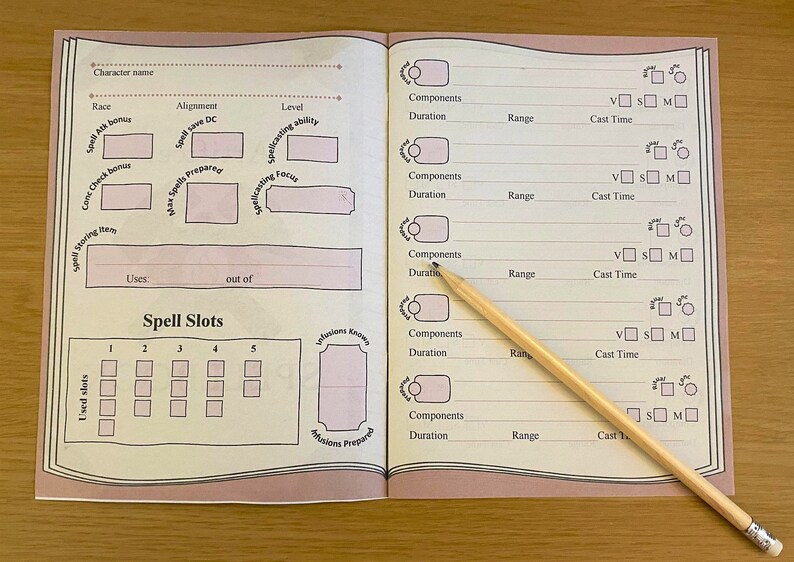 Character name
Race Alignment Level
Spell Atk bonus
Spell save DC
Spellcasting ability
Conc Check bonus
Max Spells Prepared
Spellcasting Focus
Spell Storing Item
Uses: out of
Spell Slots
1 2 3 4 5
Used slots
Infusions Known
Infusions Prepared
Prepared Ritual Conc
Components V S M
Duration Range Cast Time
Prepared Ritual Conc
Components V S M
Duration Range Cast Time
Prepared Ritual Conc
Components V S M
Duration Range Cast Time
Prepared Ritual Conc
Components V S M
Duration Cast Time
Prepared Ritual Conc
Components S M
Duration Range Cast